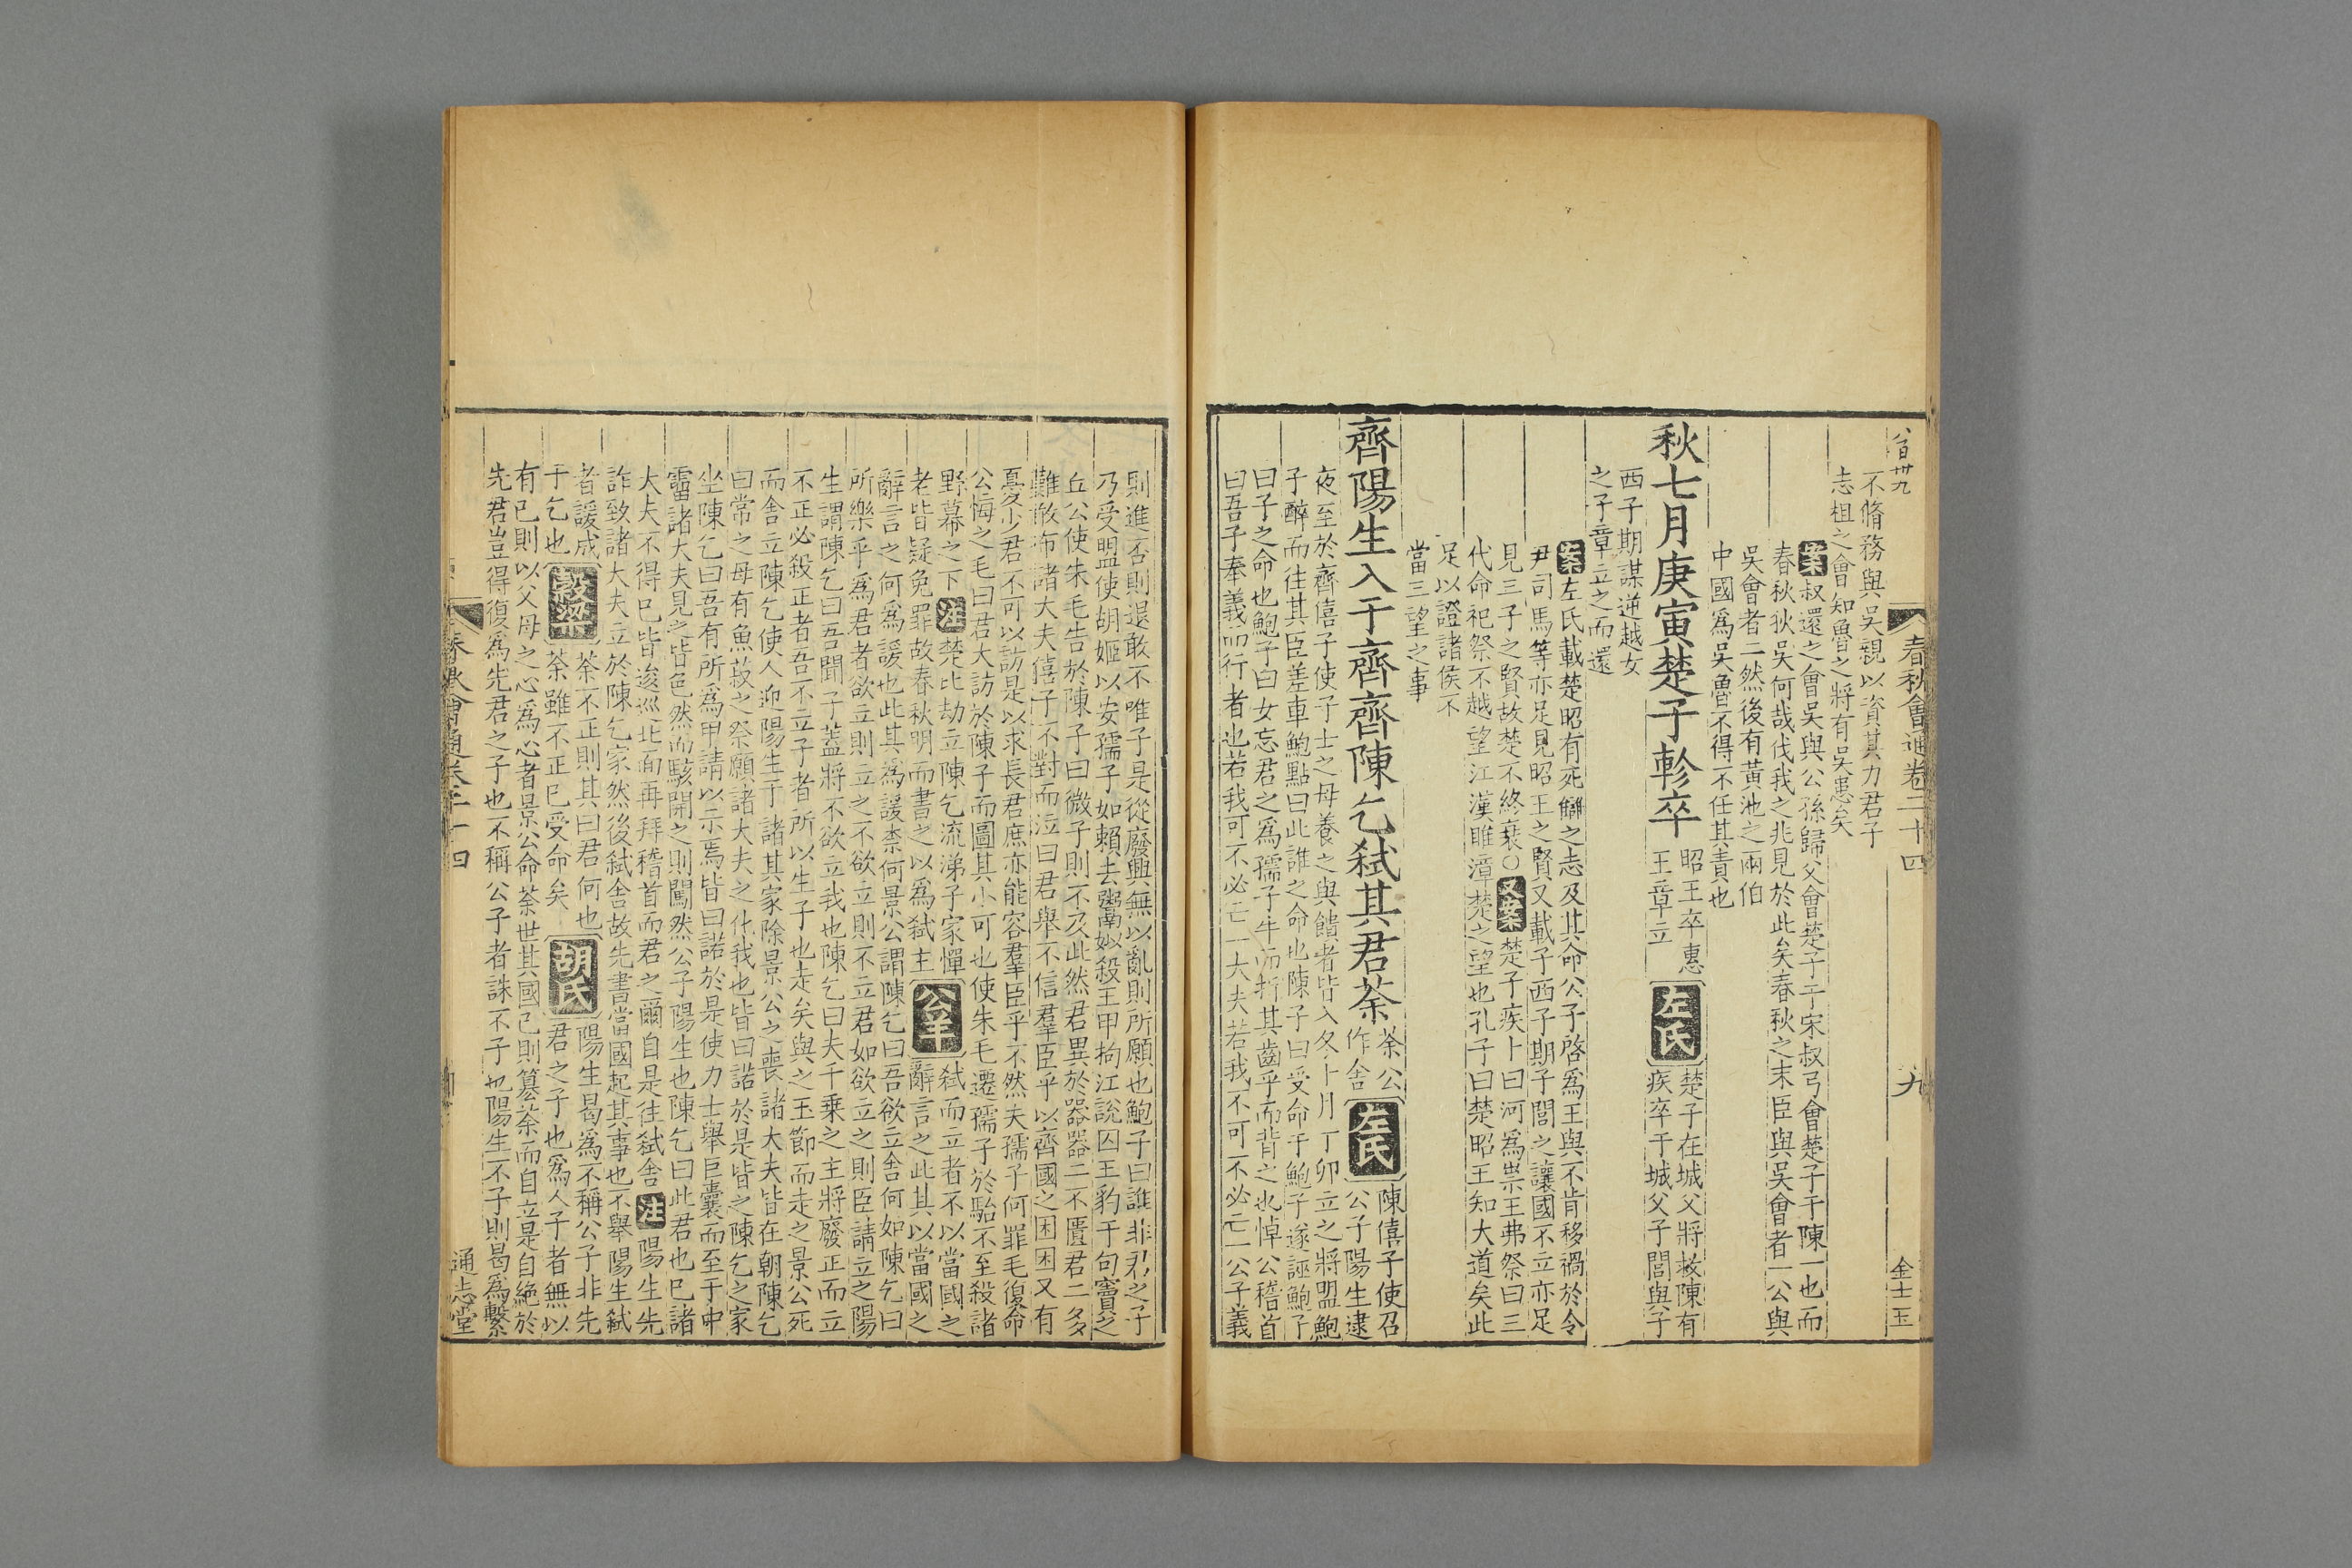 八百卅九
春秋會通卷二十四
九
金士玉
不脩務與吳親以資其力君子
志柤之會知魯之將有吳患矣
案叔還之會吳與公孫歸父會楚子于宋叔弓會楚子于陳一也而
春秋狄吳何哉伐我之兆見於此矣春秋之末臣與吳會者一公與
吳會者二然後有黃池之兩伯
中國爲吳魯不得不任其責也
秋七月庚寅楚子軫卒
昭王卒惠
王章立
左氏
楚子在城父將救陳有
疾卒于城父子閭與子
西子期謀逆越女
之子章立之而還
案左氏載楚昭有死讎之志及其命公子啓爲王與不肯移禍於令
尹司馬等亦足見昭王之賢又載子西子期子閭之讓國不立亦足
見三子之賢故楚不終衰○又案楚子疾卜曰河爲祟王弗祭曰三
代命祀祭不越望江漢睢漳楚之望也孔子曰楚昭王知大道矣此
足以證諸侯不
當三望之事
齊陽生入于齊齊陳乞弑其君荼
荼公
作舍
左氏
陳僖子使召
公子陽生逮
夜至於齊僖子使子士之母養之與饋者皆入冬十月丁卯立之將盟鮑
子醉而往其臣差車鮑點曰此誰之命也陳子曰受命于鮑子遂誣鮑子
曰子之命也鮑子曰女忘君之爲孺子牛而折其齒乎而背之也悼公稽首
曰吾子奉義而行者也若我可不必亡一大夫若我不可不必亡一公子義
則進否則退敢不唯子是從廢興無以亂則所願也鮑子曰誰非君之子
乃受盟使胡姬以安孺子如賴去鬻姒殺王甲拘江說囚王豹于句竇之
丘公使朱毛告於陳子曰微子則不及此然君異於器器二不匱君二多
難敢布諸大夫僖子不對而泣曰君舉不信羣臣乎以齊國之困困又有
憂少君不可以訪是以求長君庶亦能容羣臣乎不然夫孺子何罪毛復命
公悔之毛曰君大訪於陳子而圖其小可也使朱毛遷孺子於駘不至殺諸
野幕之下注楚比劫立陳乞流涕子家憚
老皆疑免罪故春秋明而書之以爲弑主公羊弑而立者不以當國之
辭言之此其以當國之
辭言之何爲諼也此其爲諼柰何景公謂陳乞曰吾欲立舍何如陳乞曰
所樂乎爲君者欲立則立之不欲立則不立君如欲立之則臣請立之陽
生謂陳乞曰吾聞子蓋將不欲立我也陳乞曰夫千乗之主將廢正而立
不正必殺正者吾不立子者所以生子也走矣與之玉節而走之景公死
而舍立陳乞使人迎陽生于諸其家除景公之喪諸大夫皆在朝陳乞
曰常之母有魚菽之祭願諸大夫之化我也皆曰諾於是皆之陳乞之家
坐陳乞曰吾有所爲甲請以示焉皆曰諾於是使力士舉巨囊而至于中
霤諸大夫見之皆色然而駭開之則闖然公子陽生也陳乞曰此君也已諸
大夫不得已皆逡巡北面再拜稽首而君之爾自是往弑舍注陽生先
詐致諸大夫立於陳乞家然後弑舍故先書當國起其事也不舉陽生弑
者諼成
于乞也穀梁荼不正則其曰君何也
荼雖不正已受命矣胡氏陽生曷爲不稱公子非先
君之子也爲人子者無以
有已則以父母之心爲心者景公命荼世其國已則簒荼而自立是自絶於
先君豈得復爲先君之子也不稱公子者誅不子也陽生不子則曷爲繫
春秋會通卷二十四
通志堂